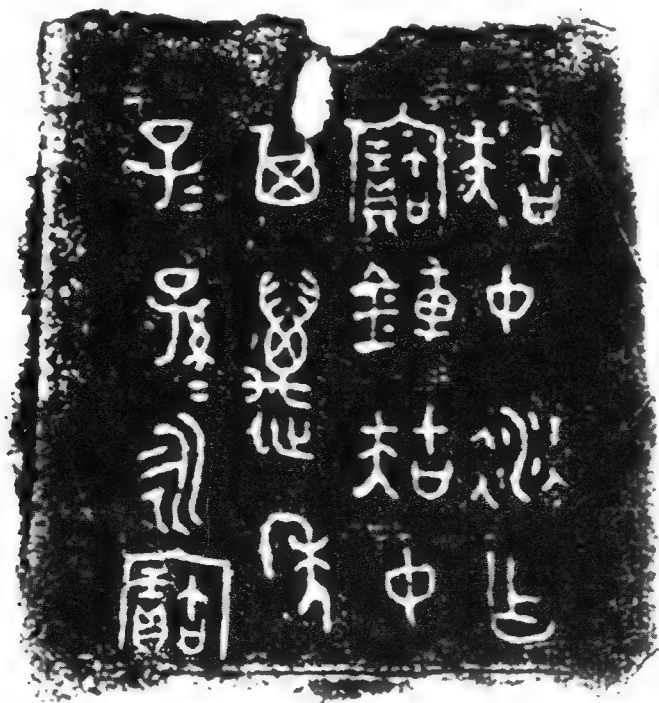 㝬中衍乍
寶鐘㝬中
其邁年
子=孫=永寶